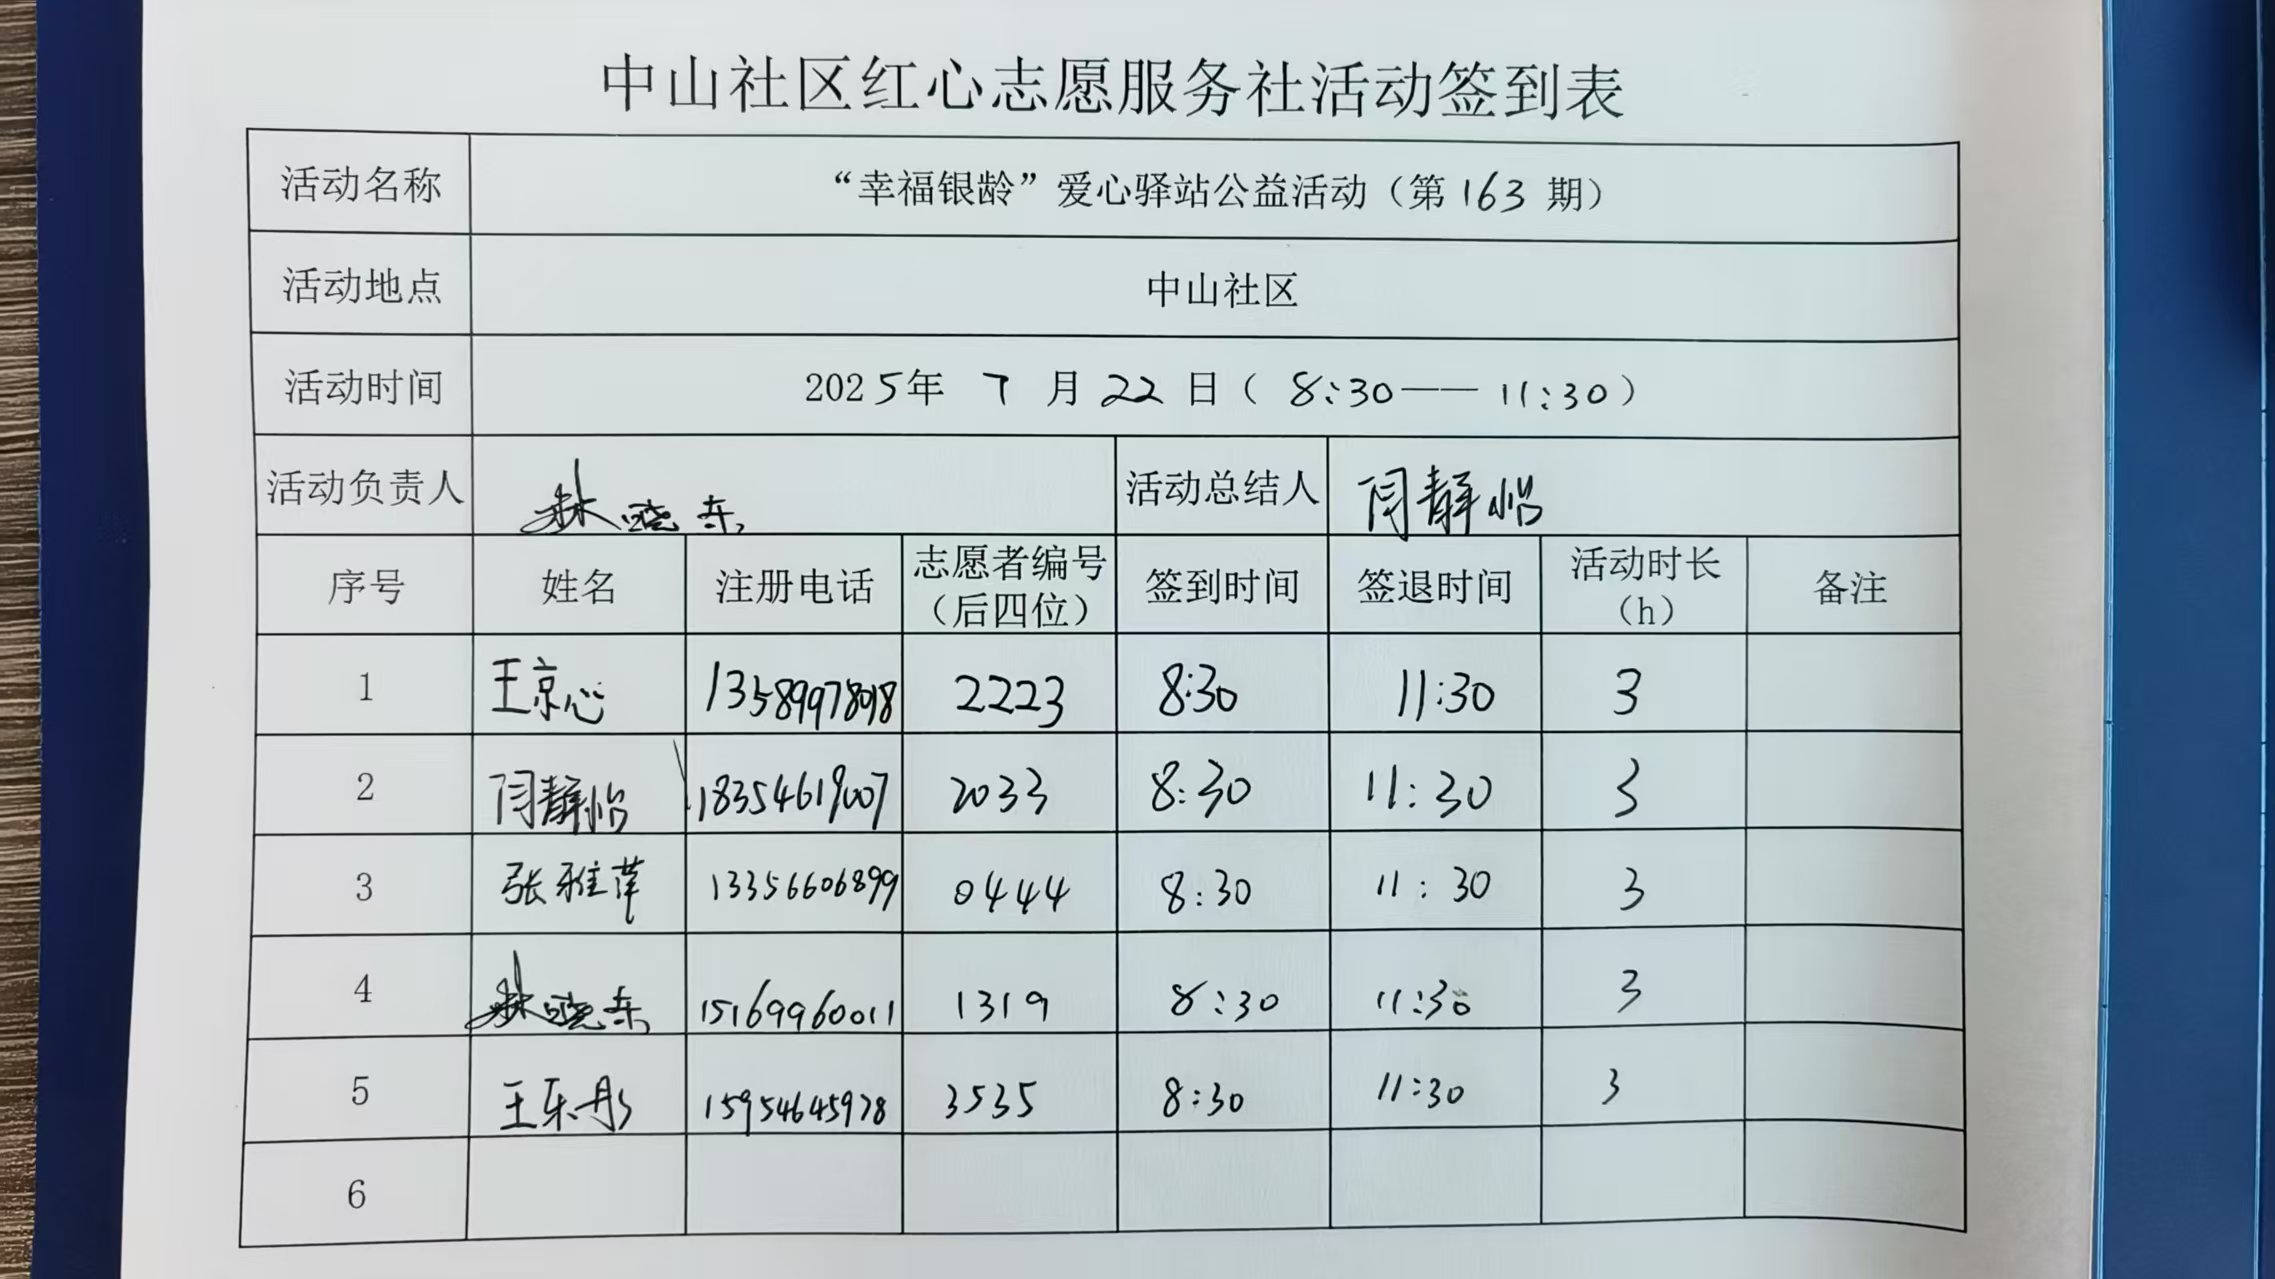 中山社区红心志愿服务社活动签到表
活动名称 “幸福银龄”爱心驿站公益活动（第 163 期）
活动地点 中山社区
活动时间 2025年 7 月 22 日（ 8:30—— 11:30）
活动负责人 林晓东 活动总结人 闫静怡
序号 姓名 注册电话 志愿者编号（后四位） 签到时间 签退时间 活动时长（h） 备注
1 王京心 2223 8:30 11:30 3
2 闫静怡 18354619007 2033 8:30 11:30 3
3 张雅萍 13356606899 0444 8:30 11:30 3
4 林晓东 15169960011 1319 8:30 11:30 3
5 王乐彤 15954645978 3535 8:30 11:30 3
6